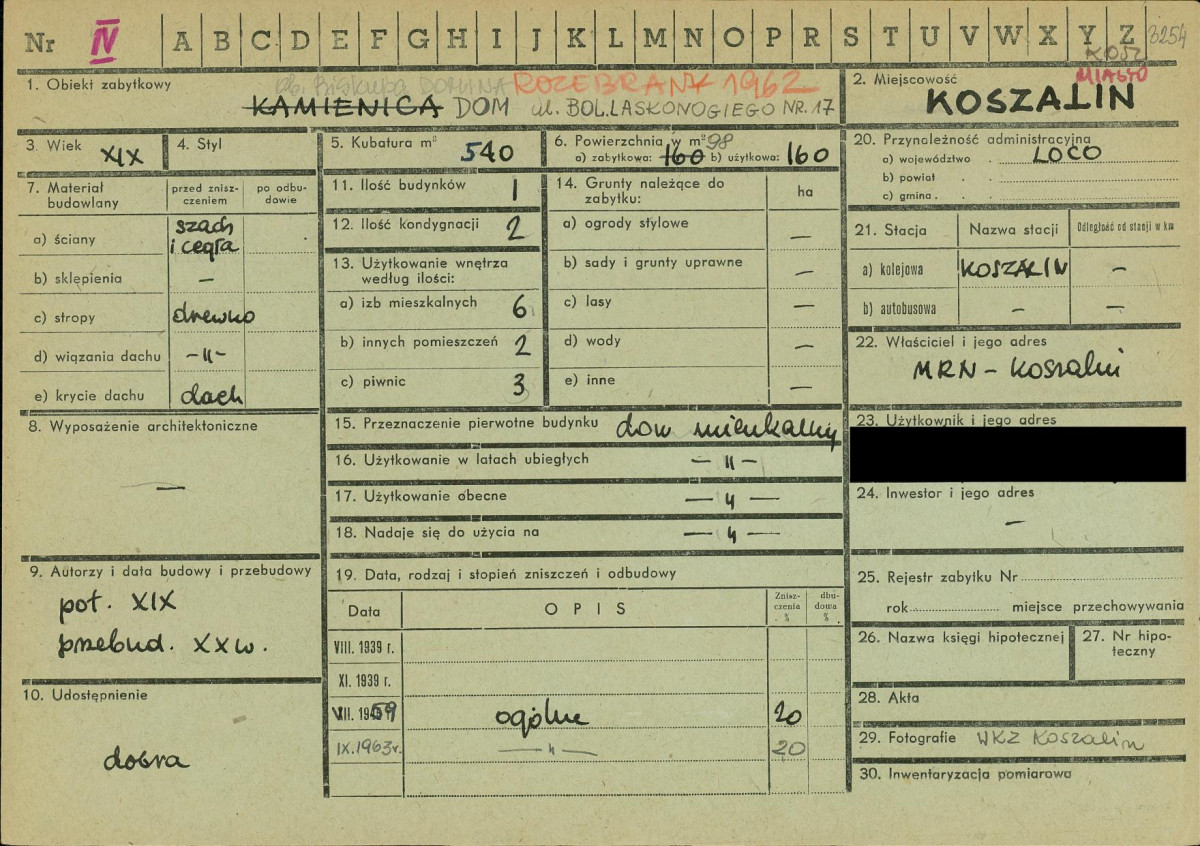 Nr IV A B C D E F G H I J K L M N O P R S T U V W X Y Z 3254
KOSZ
MIASTO
1. Obiekt zabytkowy
ROZEBRANY 1962
KAMIENICA DOM ul. BOL. LASKONOGIEGO NR. 17
2. Miejscowość
KOSZALIN
3. Wiek XIX
4. Styl
5. Kubatura m³ 540
6. Powierzchnia w m² 98
a) zabytkowa: 160 b) użytkowa: 160
20. Przynależność administracyjna
a) województwo LOCO
b) powiat
c) gmina
7. Materiał budowlany
przed znisz-
czeniem
po odbu-
dowie
a) ściany szach
i cegła
b) sklepienia –
c) stropy drewno
d) wiązania dachu –"–
e) krycie dachu dach
11. Ilość budynków 1
12. Ilość kondygnacji 2
13. Użytkowanie wnętrza
według ilości:
a) izb mieszkalnych 6
b) innych pomieszczeń 2
c) piwnic 3
14. Grunty należące do
zabytku:
ha
a) ogrody stylowe –
b) sady i grunty uprawne –
c) lasy –
d) wody –
e) inne –
21. Stacja Nazwa stacji Odległość od stacji w km
a) kolejowa KOSZALIN –
b) autobusowa – –
22. Właściciel i jego adres
MRN – Koszalin
8. Wyposażenie architektoniczne
–
15. Przeznaczenie pierwotne budynku dom mieszkalny
16. Użytkowanie w latach ubiegłych –"–
17. Użytkowanie obecne –"–
18. Nadaje się do użycia na –"–
23. Użytkownik i jego adres
24. Inwestor i jego adres
–
9. Autorzy i data budowy i przebudowy
poł. XIX
przebud. XX w.
10. Udostępnienie
dobra
19. Data, rodzaj i stopień zniszczeń i odbudowy
Data OPIS Znisz-
czenia
%
dbu-
dowa
%
VIII. 1939 r.
XI. 1939 r.
VII. 1959 ogólne 20
IX. 1963 r. –"– 20
25. Rejestr zabytku Nr
rok miejsce przechowywania
26. Nazwa księgi hipotecznej
27. Nr hipo-
teczny
28. Akta
29. Fotografie WKZ Koszalin
30. Inwentaryzacja pomiarowa